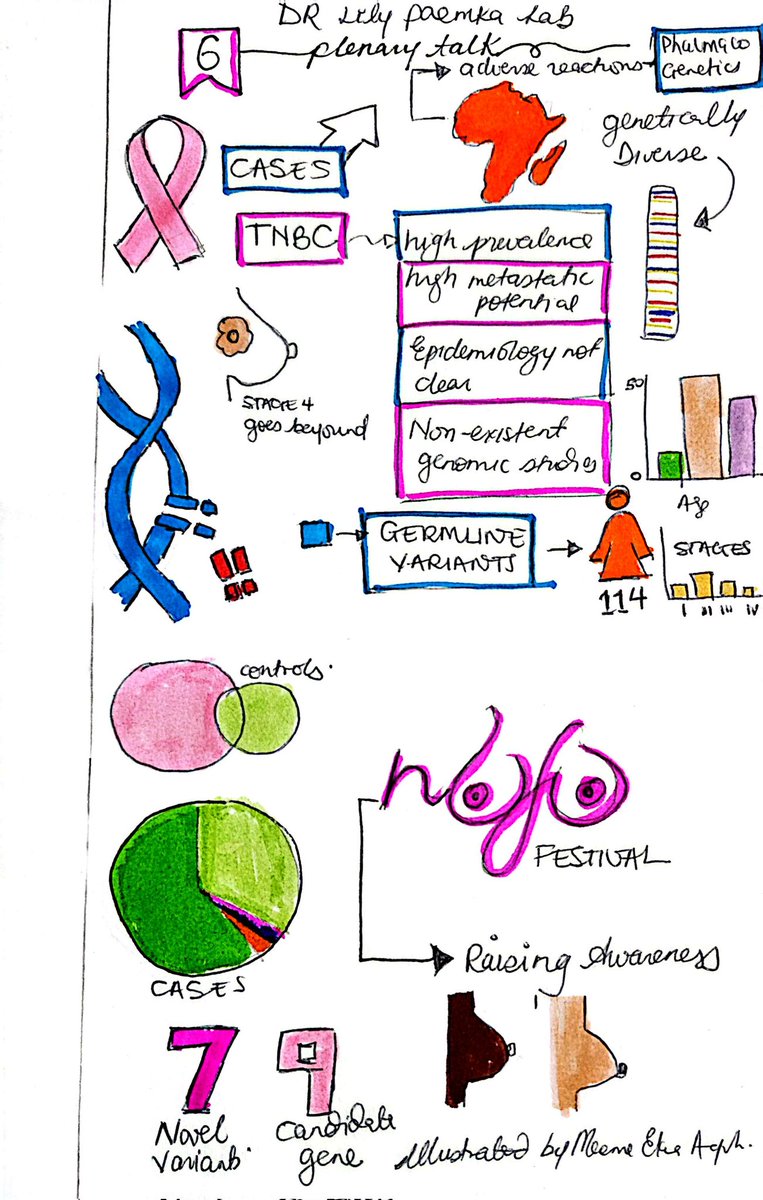 DR Lily Paemka Lab
plenary talk
6
adverse reactions
Phalmaco
Genetics
genetically
Diverse
CASES
TNBC
high prevalence
high metastatic
potential
Epidemiology not
clear
Non-existent
genomic studies
STAGE 4
goes beyound
50
0
GERMLINE
VARIANTS
114
STAGES
I II III IV
controls.
nojo
FESTIVAL
CASES
Raising Awareness
7
9
Novel
variants.
Candidate
gene
Illustrated by